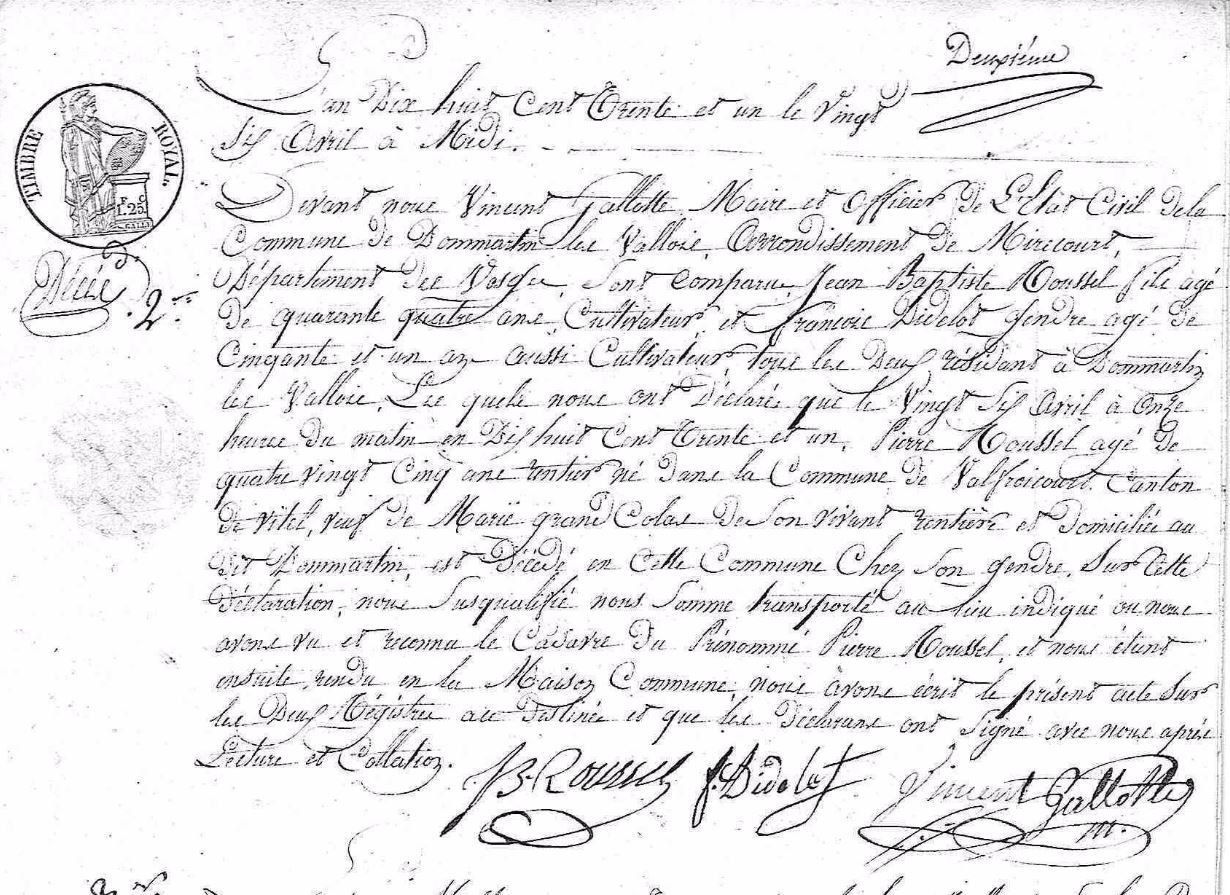 Deuxiéme
L'an Dix huit Cent Trente et un le Vingt
Six Avril à Midi.
TIMBRE ROYAL.
F. C
1. 25
Devant nous Vincent Gallotte Maire et Officier de L'Etat Civil de la
Commune de Dommartin les Vallois, Arrondissement de Mirecourt,
Décés
2.me
Département des Vosges, Sont Comparu, Jean Baptiste Roussel fils agé
de quarante quatre ans, Cultivateur, et françois Didelot gendre agé de
Cinqante et un an aussi Cultivateur, tous les Deux résidant à Dommartin
les Vallois, Les quels nous ont Déclaré, que le Vingt Six Avril à Onze
heures du matin en Dix huit Cent Trente et un, Pierre Roussel agé de
quatre vingt Cinq ans rentier né dans la Commune de Valfroicourt Canton
de vitel, veuf de Marie grand Colas de Son vivant rentière et Domiciliée au
Dit Dommartin, est Décédé en Cette Commune Chez Son gendre, Sur Cette
Déclaration, nous Susqualifié nous Somme transporté au lieu indiqué ou nous
avons vu et reconnu le Cadavre du Prénommé Pierre Roussel, et nous étant
ensuite, rendu en la Maison Commune, nous avons écrit le présent acte Sur
les Deux Régistres ace Destinés et que les Déclarans ont Signé avec nous après
Lecture et Collation.
JB. ROUSSEL f. Didelot Vincent Gallotte
m.